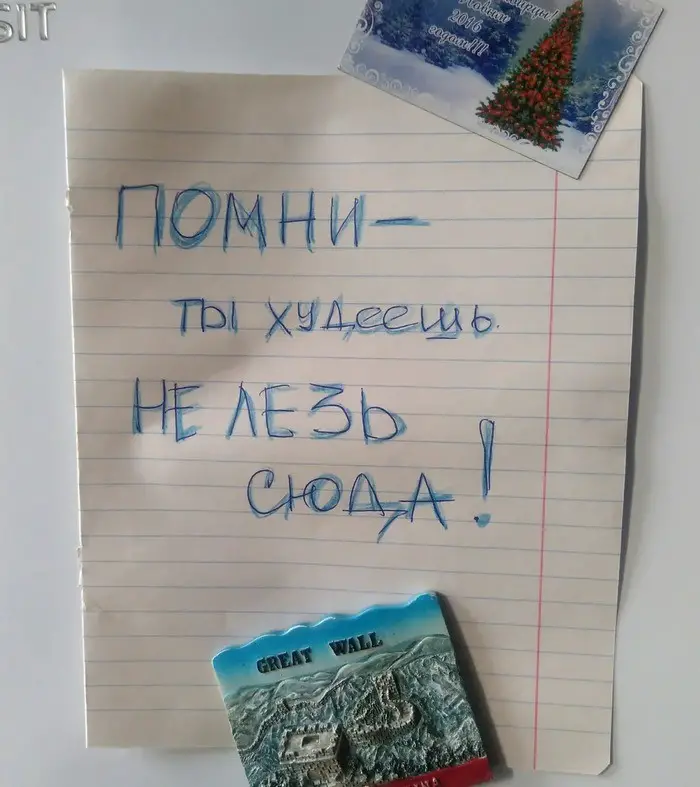 Новым
2016
годом!!!
ПОМНИ —
ТЫ ХУДЕЕШЬ.
НЕ ЛЕЗЬ
СЮДА!
GREAT WALL